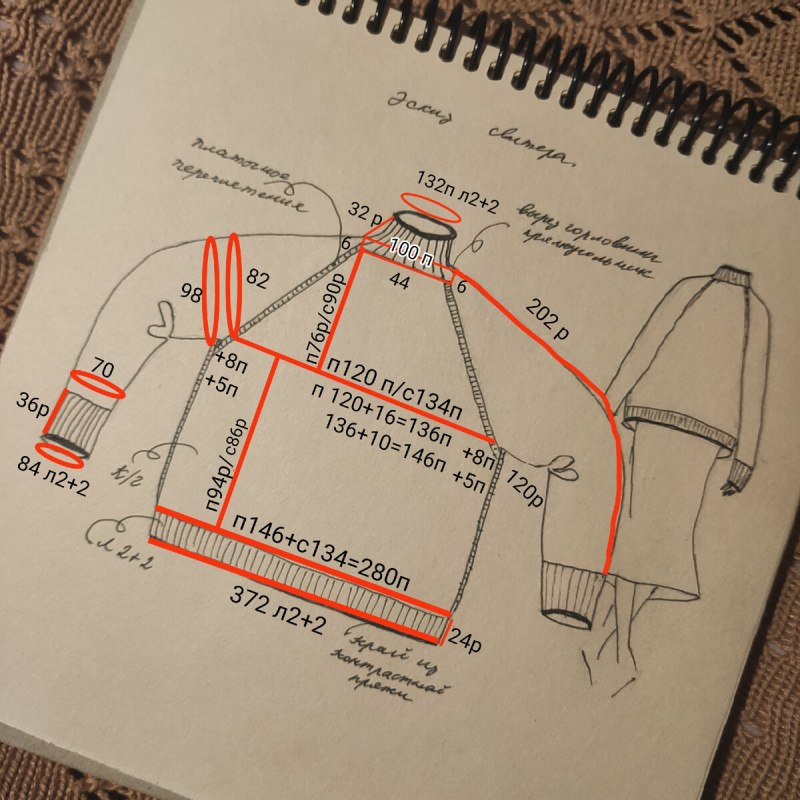 Эскиз свитера.
платочное
переплетения
132п л2+2
вырез горловины
прямоугольник
32 р
6
100 п
44
6
98
82
п76р/с90р
202 р
+8п
+5п
п120 п/с134п
п 120+16=136п +8п
136+10=146п +5п
70
36р
84 л2+2
120р
к/г
п94р/с86р
л 2+2
п146+с134=280п
372 л2+2
24р
край из
контрастной
пряжи